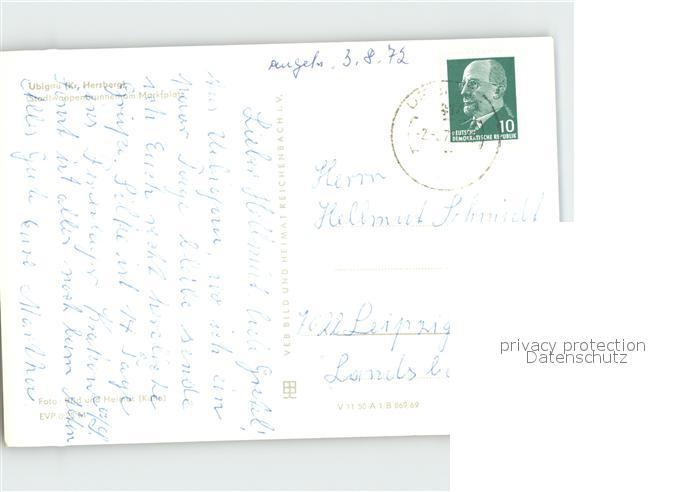 angek. 3.8.72
Übigau (Kr. Herzberg)
Stadtwappenbrunnen am Marktplatz
DEUTSCHE
DEMOKRATISCHE REPUBLIK
10
Herrn
Hellmut Schmidt
7022 Leipzig
Lands
VEB BILD UND HEIMAT REICHENBACH i.V.
Lieber Hellmut, liebe
aus Übigau, wo ich ein
paar Tage bleibe sende
ich Euch recht herzliche
Grüße. Silke ist 14 Tage
ins
sonst ist alles noch beim Alten
Alles Gute Eure Martha
Foto: Bild und Heimat
EVP
V 11 50 A 1/B 869/69
privacy protection
Datenschutz